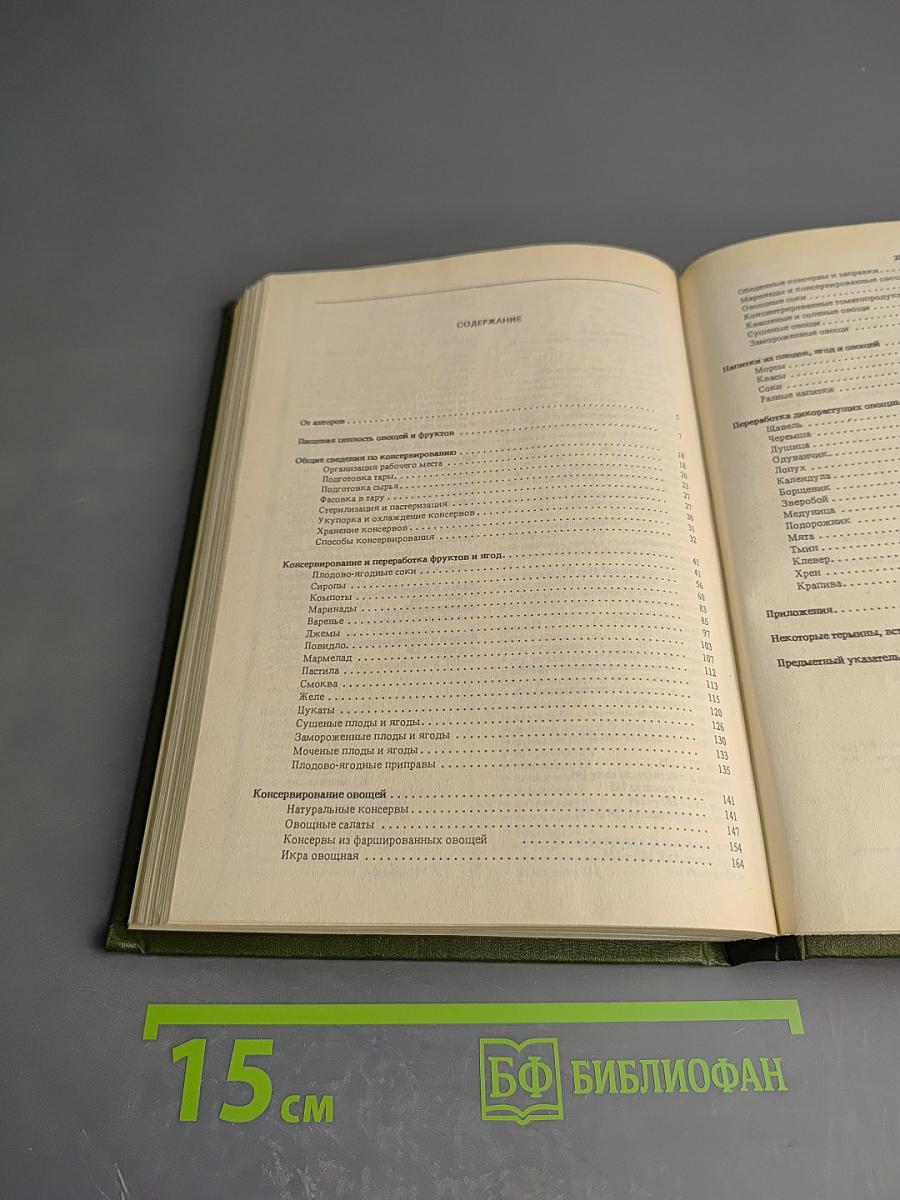 СОДЕРЖАНИЕ
От авторов . . . 5
Пищевая ценность овощей и фруктов . . . 7
Общие сведения по консервированию . . . 18
Организация рабочего места . . . 18
Подготовка тары. . . . 20
Подготовка сырья. . . . 23
Фасовка в тару . . . 27
Стерилизация и пастеризация . . . 27
Укупорка и охлаждение консервов . . . 30
Хранение консервов . . . 31
Способы консервирования . . . 32
Консервирование и переработка фруктов и ягод. . . . 41
Плодово-ягодные соки . . . 41
Сиропы . . . 56
Компоты . . . 60
Маринады . . . 83
Варенье . . . 85
Джемы . . . 97
Повидло. . . . 103
Мармелад . . . 107
Пастила . . . 112
Смоква . . . 113
Желе . . . 115
Цукаты . . . 120
Сушеные плоды и ягоды. . . . 126
Замороженные плоды и ягоды . . . 130
Моченые плоды и ягоды . . . 133
Плодово-ягодные приправы . . . 135
Консервирование овощей . . . 141
Натуральные консервы . . . 141
Овощные салаты . . . 147
Консервы из фаршированных овощей . . . 154
Икра овощная . . . 164
Обеденные консервы и заправки . . .
Маринады и консервированные
Овощные соки . . .
Концентрированные
Квашеные и соленые овощи . . .
Сушеные овощи . . .
Замороженные овощи . . .
Напитки из плодов, ягод и овощей . . .
Морсы . . .
Квасы . . .
Соки . . .
Разные напитки . . .
Переработка дикорастущих
Щавель . . .
Черемша . . .
Душица . . .
Одуванчик. . . .
Лопух . . .
Календула . . .
Борщевик . . .
Зверобой . . .
Медуница . . .
Подорожник . . .
Мята . . .
Тмин . . .
Клевер. . . .
Хрен . . .
Крапива. . . .
Приложения. . . .
Некоторые термины,
Предметный указатель
15 см
БФ БИБЛИОФАН